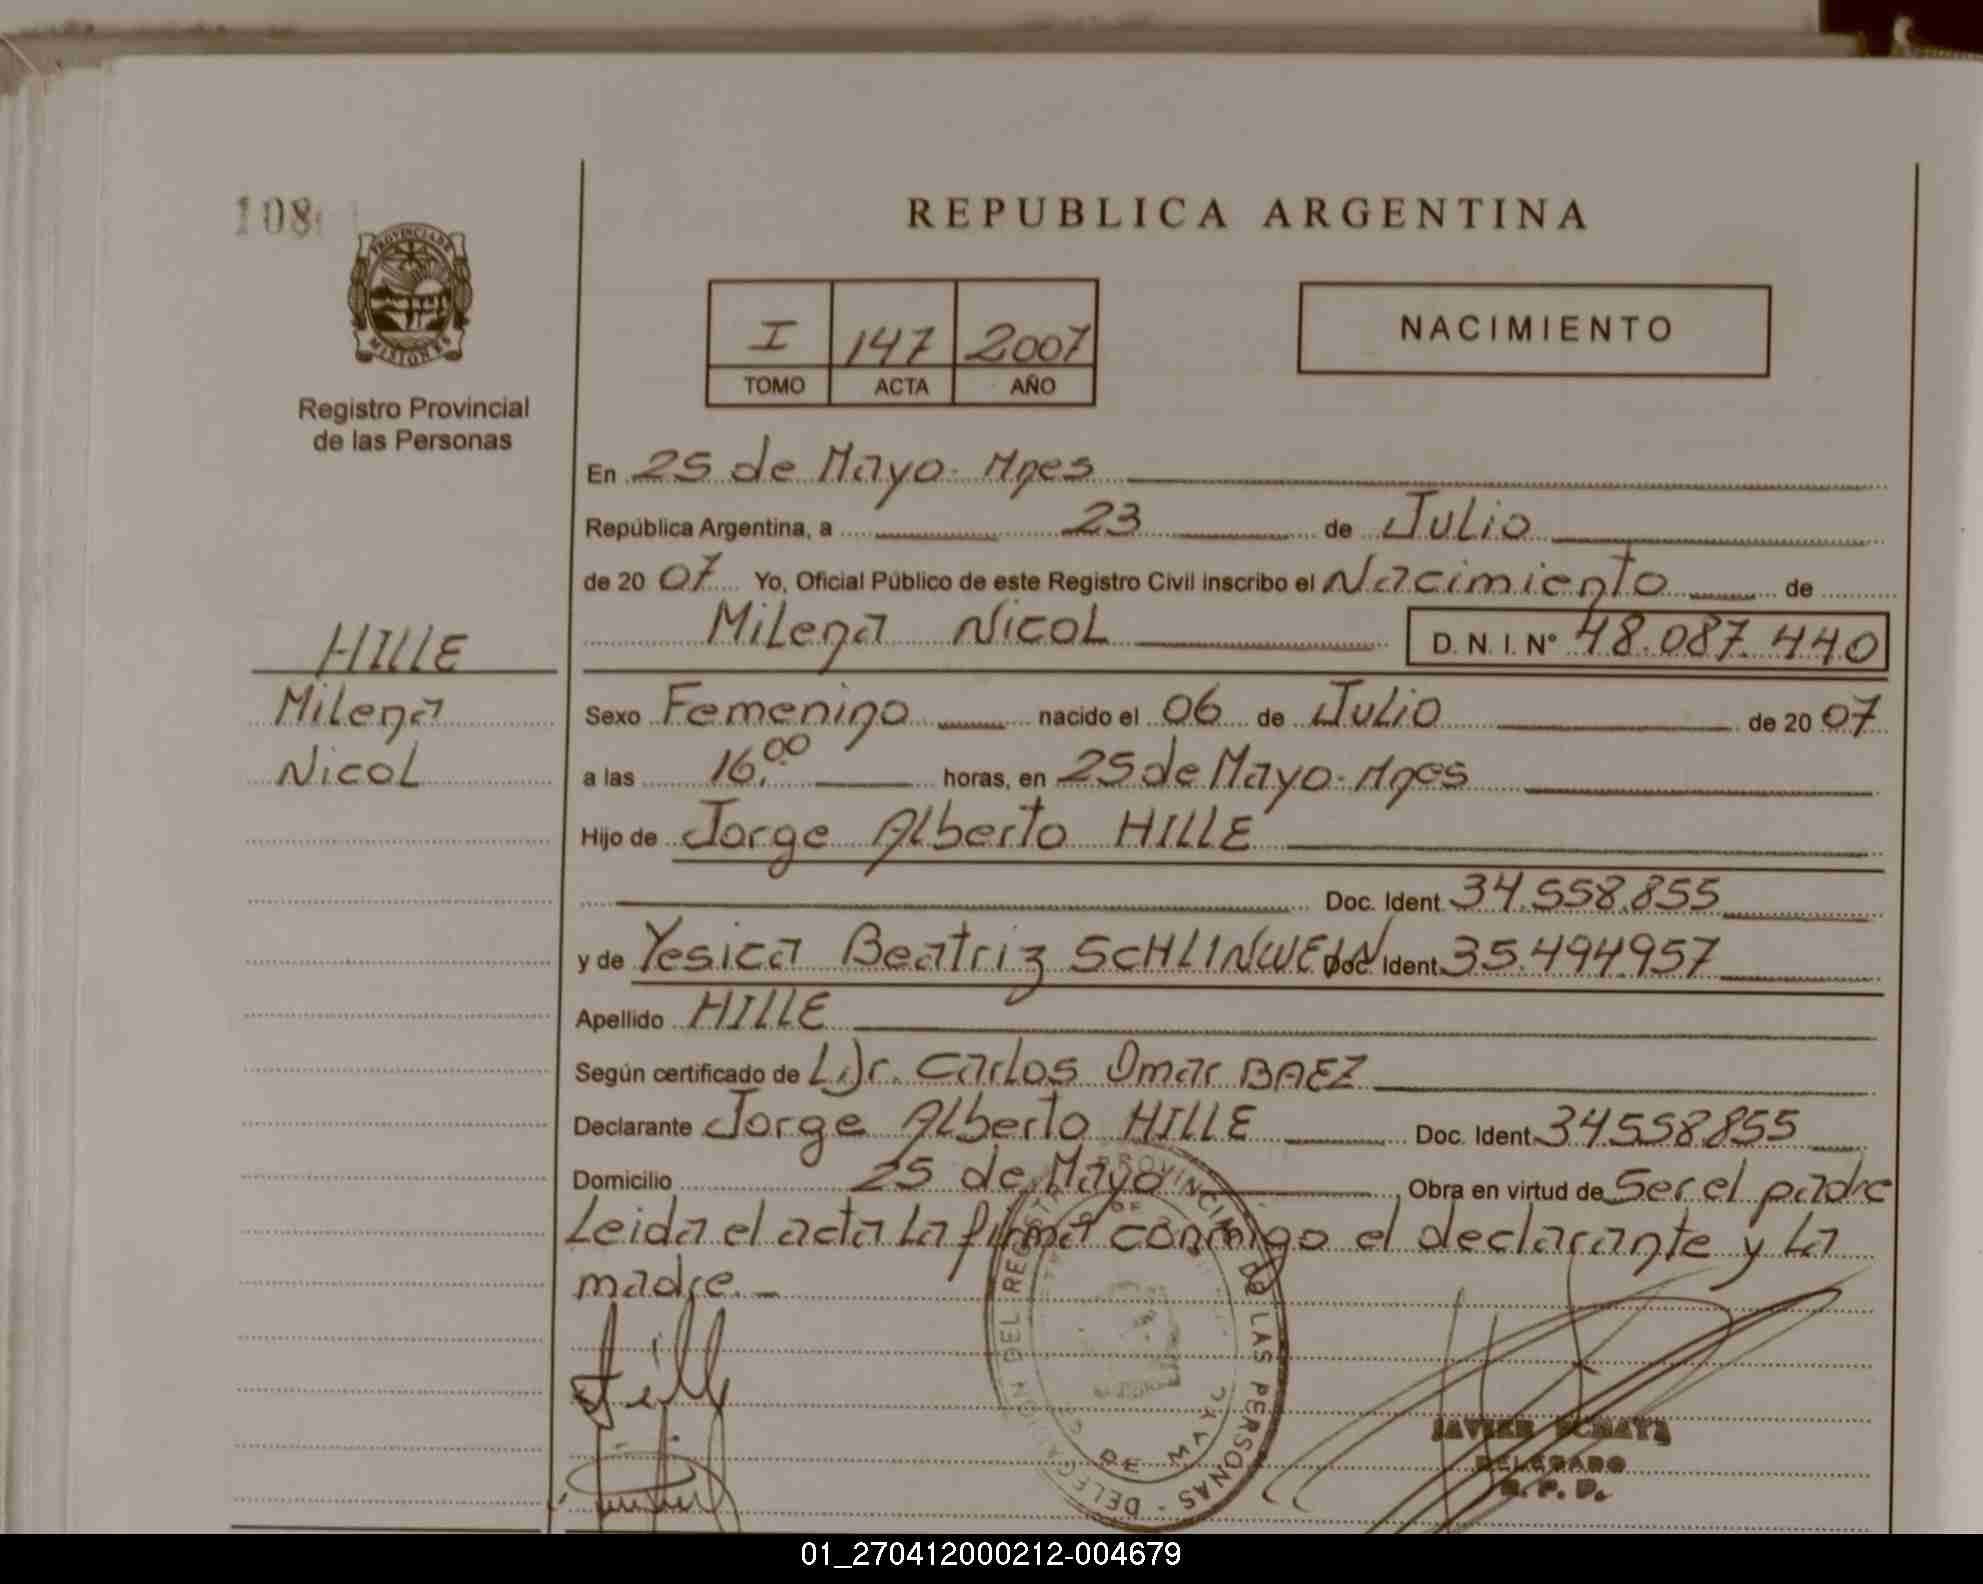 108
PROVINCIA DE
MISIONES
Registro Provincial
de las Personas
REPUBLICA ARGENTINA
I 147 2007
TOMO ACTA AÑO
NACIMIENTO
En 25 de Mayo. Mnes
República Argentina, a 23 de Julio
de 20 07 Yo, Oficial Público de este Registro Civil inscribo el Nacimiento de
Milena Nicol D. N. I. Nº 48.087.440
HILLE
Milena
Nicol
Sexo Femenino nacido el 06 de Julio de 20 07
a las 16.00 horas, en 25 de Mayo. Mnes
Hijo de Jorge Alberto HILLE
Doc. Ident. 34.558.855
y de Yesica Beatriz SCHLINWEIN Doc. Ident. 35.494957
Apellido HILLE
Según certificado de Dr. Carlos Omar BAEZ
Declarante Jorge Alberto HILLE Doc. Ident. 34558855
Domicilio 25 de Mayo Obra en virtud de Ser el padre
Leida el acta La firma conmigo el declarante y La
madre. -
DELEGACION DEL REGISTRO PROVINCIAL DE LAS PERSONAS -
25 DE MAYO
JAVIER
DELEGADO
R. P. P.
01_270412000212-004679